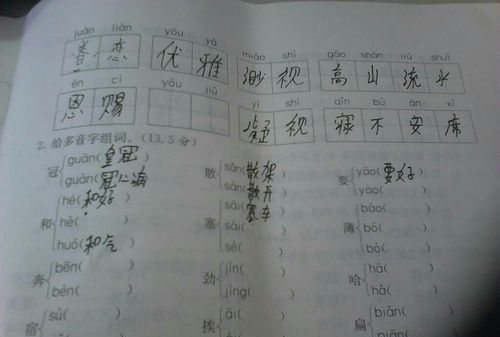 juàn liàn yōu yǎ miǎo shì gāo shān liú shuǐ
眷恋 优雅 渺视 高山流水
ēn cì yōu jiǔ yí shì qǐn bù ān xí
恩赐 疑视 寝不安席
2. 给多音字组词。(13.5分)
冠 guān(皇冠) 散 sǎn(散架) 要 yāo(要好)
guàn(冠心病) sàn(散开) yào( )
和 hé(和好) 塞 sāi(塞车) 薄 báo( )
hè( ) sài( ) bó( )
huó(和气) sè( ) bò( )
奔 bēn( ) 劲 jìn( ) 哈 hā( )
bèn( ) jìng( ) hǎ( )
宿 sù( ) 挨 āi( ) 扁 biǎn( )
piān(